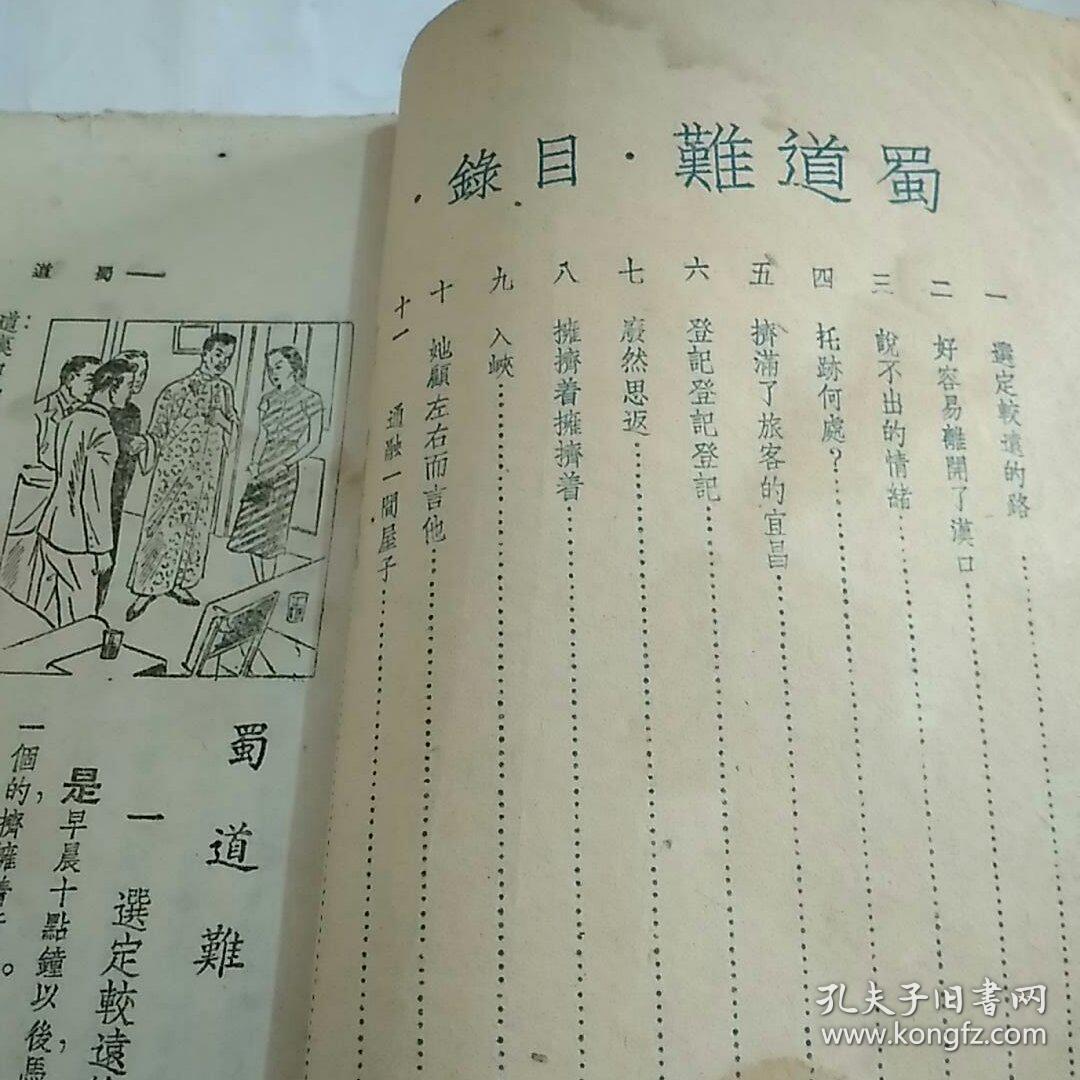 蜀道難・目錄
一 選定較遠的路
二 好容易離開了漢口
三 說不出的情緒
四 托跡何處？
五 擠滿了旅客的宜昌
六 登記登記登記
七 廢然思返
八 擁擠着擁擠着
九 入峽
十 她顧左右而言他
十一 通融一間屋子
蜀道
蜀道難
一 選定較遠
是早晨十點鐘以後，馬
一個的擠擁着
孔夫子旧书网
www.kongfz.com